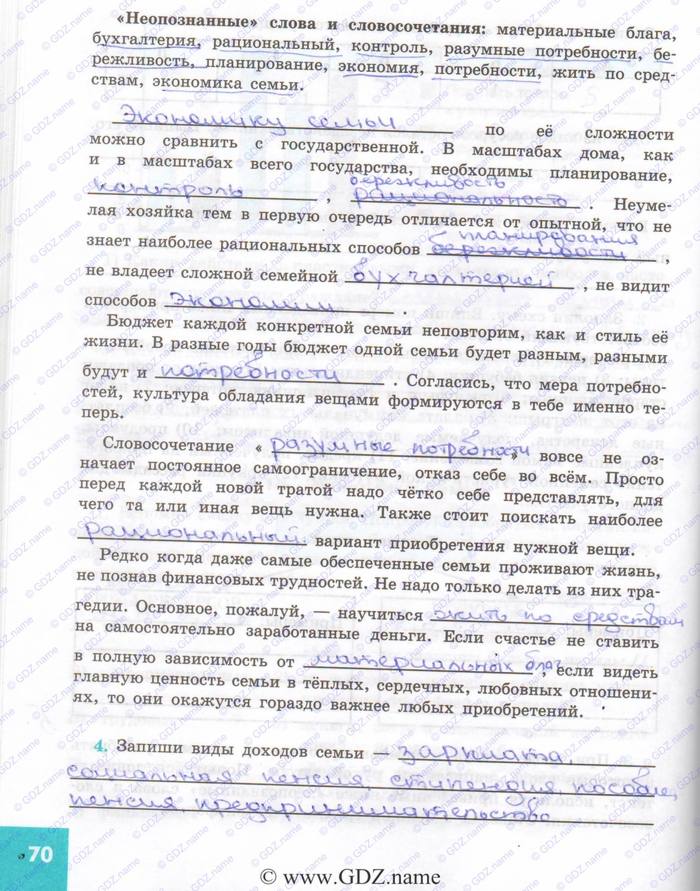 «Неопознанные» слова и словосочетания: материальные блага,
бухгалтерия, рациональный, контроль, разумные потребности, бе-
режливость, планирование, экономия, потребности, жить по сред-
ствам, экономика семьи.
Экономику семьи по её сложности
можно сравнить с государственной. В масштабах дома, как
и в масштабах всего государства, необходимы планирование,
бережливость
контроль , рациональность . Неуме-
лая хозяйка тем в первую очередь отличается от опытной, что не
планирования
знает наиболее рациональных способов бережливости ,
не владеет сложной семейной бухгалтерией , не видит
способов экономии .
Бюджет каждой конкретной семьи неповторим, как и стиль её
жизни. В разные годы бюджет одной семьи будет разным, разными
будут и потребности . Согласись, что мера потребно-
стей, культура обладания вещами формируются в тебе именно те-
перь.
Словосочетание « разумные потребности » вовсе не оз-
начает постоянное самоограничение, отказ себе во всём. Просто
перед каждой новой тратой надо чётко себе представлять, для
чего та или иная вещь нужна. Также стоит поискать наиболее
рациональный вариант приобретения нужной вещи.
Редко когда даже самые обеспеченные семьи проживают жизнь,
не познав финансовых трудностей. Не надо только делать из них тра-
гедии. Основное, пожалуй, — научиться жить по средствам
на самостоятельно заработанные деньги. Если счастье не ставить
в полную зависимость от материальных благ , если видеть
главную ценность семьи в тёплых, сердечных, любовных отношени-
ях, то они окажутся гораздо важнее любых приобретений.
4. Запиши виды доходов семьи — зарплата,
социальная пенсия стипендия, пособие,
пенсия предпринимательство
70
© www.GDZ.name